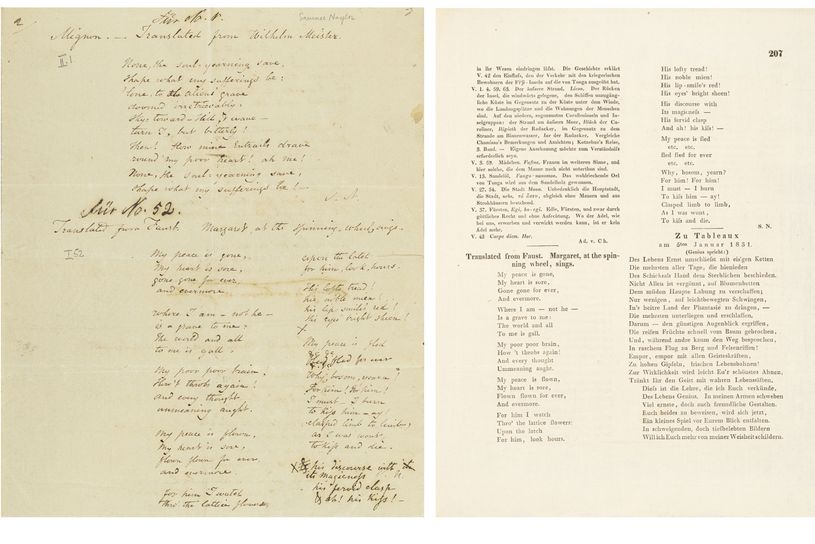 2
Für No. 1.
Samuel Naylor
Mignon. — Translated from Wilhelm Meister.
II.1
None, the soul-yearning save,
Shape what my sufferings be:
Lone, to the silent grave
doomed irretrievably.
turn I, but bitterly!
round my poor heart! ah me!
None, the soul-yearning save,
Shape what my sufferings be! —
S. N.
Für No. 52.
Translated from Faust. Margaret at the spinning wheel, sings.
I 52
My peace is gone,
My heart is sore,
gone gone for ever,
and evermore.
where I am – not he –
is a grave to me:
the world and all
to me is gall.
My poor poor brain,
How't throbs again!
and every thought
unmeaning aught.
My peace is flown,
My heart is sore,
flown flown for ever
and evermore
for him I watch
thro' the lattice flowers
upon the latch
for him, look, hours.
His lofty tread!
his noble mien!
his lip-smiles red!
His eyes' bright sheen!
x
My peace is fled
fled for ever
Why, bosom, yearn?
For him! for him!
I must – I burn
to kiss him – ay!
clasped limb to limb,
as I was wont,
to kiss and die.
his discourse with
its magicness
his fervid clasp
& ah! his kiss! –
207
in ihr Wesen eindringen läßt. Die Geschichte erklärt
V. 42 den Einfluß, den der Verkehr mit den kriegerischen
Bewohnern der Fiji-Inseln auf die von Tonga ausgeübt hat.
V. 1. 4. 59. 63. Der äußere Strand, Licoo. Der Rücken
der Insel, die windwärts gelegene, den Schiffen unzugäng-
liche Küste im Gegensatz zu der Küste unter dem Winde,
wo die Landungsplätze und die Wohnungen der Menschen
sind. Auf den niedern, sogenannten Coralleninseln und In-
selgruppen: der Strand am äußern Meer, Iliich der Ca-
roliner, Iligieth der Radacker, im Gegensatz zu dem
Strande am Binnenwasser, Iar der Radacker. Vergleiche
Chamisso's Bemerkungen und Ansichten; Kotzebue's Reise,
3. Band. — Eigene Anschauung möchte zum Verständniß
erforderlich seyn.
V. 3. 59. Mädchen. Fafine, Frauen im weitern Sinne, und
hier solche, die dem Manne noch nicht unterthan sind.
V. 13. Sandelöl, Fango-nanamoo. Das wohlriechende Oel
von Tonga wird aus dem Sandelholz gewonnen.
V. 27. 54. Die Stadt Mooa. Unbedenklich die Hauptstadt,
die Stadt, urbs, τὸ ἄστυ, obgleich ohne Mauern und aus
Strohhäusern bestehend.
V. 37. Fürsten, Egi, ho-egi. Edle, Fürsten, und zwar durch
göttliches Recht und ohne Anfechtung. Wo der Adel, wie
bei uns, erworben und verwirkt werden kann, ist er kein
Adel mehr.
V. 43 Carpe diem. Hor.
Ad. v. Ch.
Translated from Faust. Margaret, at the spin-
ning wheel, sings.
My peace is gone,
My heart is sore,
Gone gone for ever,
And evermore.
Where I am — not he —
Is a grave to me:
The world and all
To me is gall.
My poor poor brain,
How 't throbs again!
And every thought
Unmeaning aught.
My peace is flown,
My heart is sore,
Flown flown for ever,
And evermore.
For him I watch
Thro' the lattice flowers:
Upon the latch
For him, look hours.
His lofty tread!
His noble mien!
His lip-smile's red!
His eyes' bright sheen!
His discourse with
Its magicness —
His fervid clasp
And ah! his kiss! —
My peace is fled
etc. etc.
fled fled for ever
etc. etc.
Why, bosom, yearn?
For him! For him!
I must — I burn
To kiss him — ay!
Clasped limb to limb,
As I was wont,
To kiss and die.
S. N.
Zu Tableaux
am 5ten Januar 1831.
(Genius spricht:)
Des Lebens Ernst umschließt mit eis'gen Ketten
Die mehrsten aller Tage, die hienieden
Des Schicksals Hand dem Sterblichen beschieden.
Nicht Allen ist vergönnt, auf Blumenbetten
Dem müden Haupte Labung zu verschaffen;
Nur wenigen, auf leichtbewegten Schwingen,
In's heitre Land der Phantasie zu dringen, —
Die mehrsten unterliegen und erschlaffen.
Darum — den günstigen Augenblick ergriffen,
Die reifen Früchte schnell vom Baum gebrochen,
Und, während andre kaum den Weg besprochen,
In raschem Flug zu Berg und Felsenriffen!
Empor, empor mit allen Geisteskräften,
Zu hohen Gipfeln, frischen Lebensbahnen!
Zur Wirklichkeit wird leicht Eu'r schönstes Ahnen,
Tränkt Ihr den Geist mit wahren Lebenssäften,
Dieß ist die Lehre, die ich Euch verkünde,
Des Lebens Genius. In meinen Armen schweben
Viel ernste, doch auch freundliche Gestalten.
Euch beides zu beweisen, wird sich jetzt,
Ein kleines Spiel vor Eurem Blick entfalten.
In schweigenden, doch vielbelebten Bildern
Will ich Euch mehr von meiner Weisheit schildern.